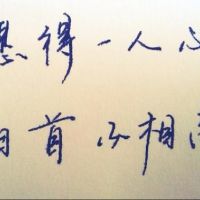 愿得一人心
白首不相